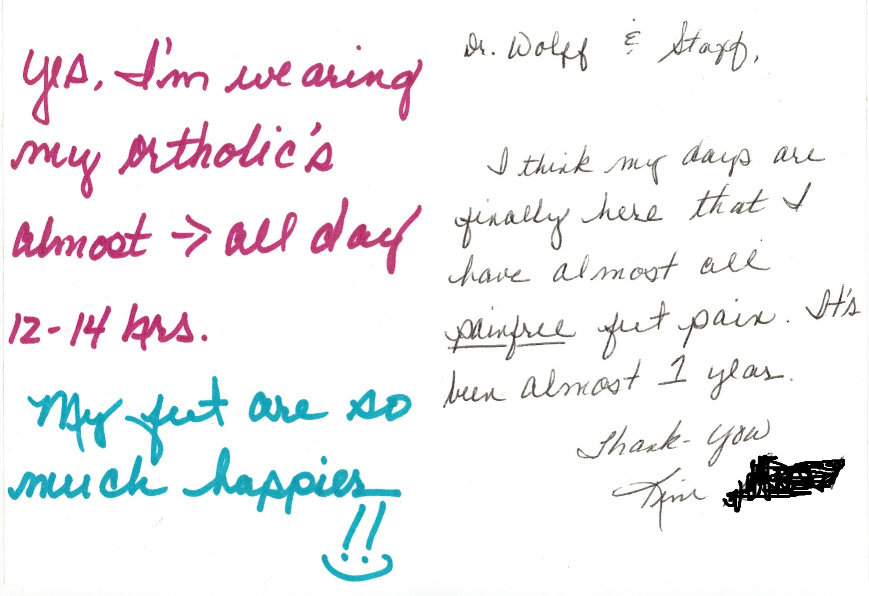 yes, I'm wearing
my ortholic's
almost → all day
12-14 hrs.
My feet are so
much happier
!!
Dr. Wolff & Staff,
I think my days are
finally here that I
have almost all
painfree feet pain. It's
been almost 1 year.
Thank-you
Kim